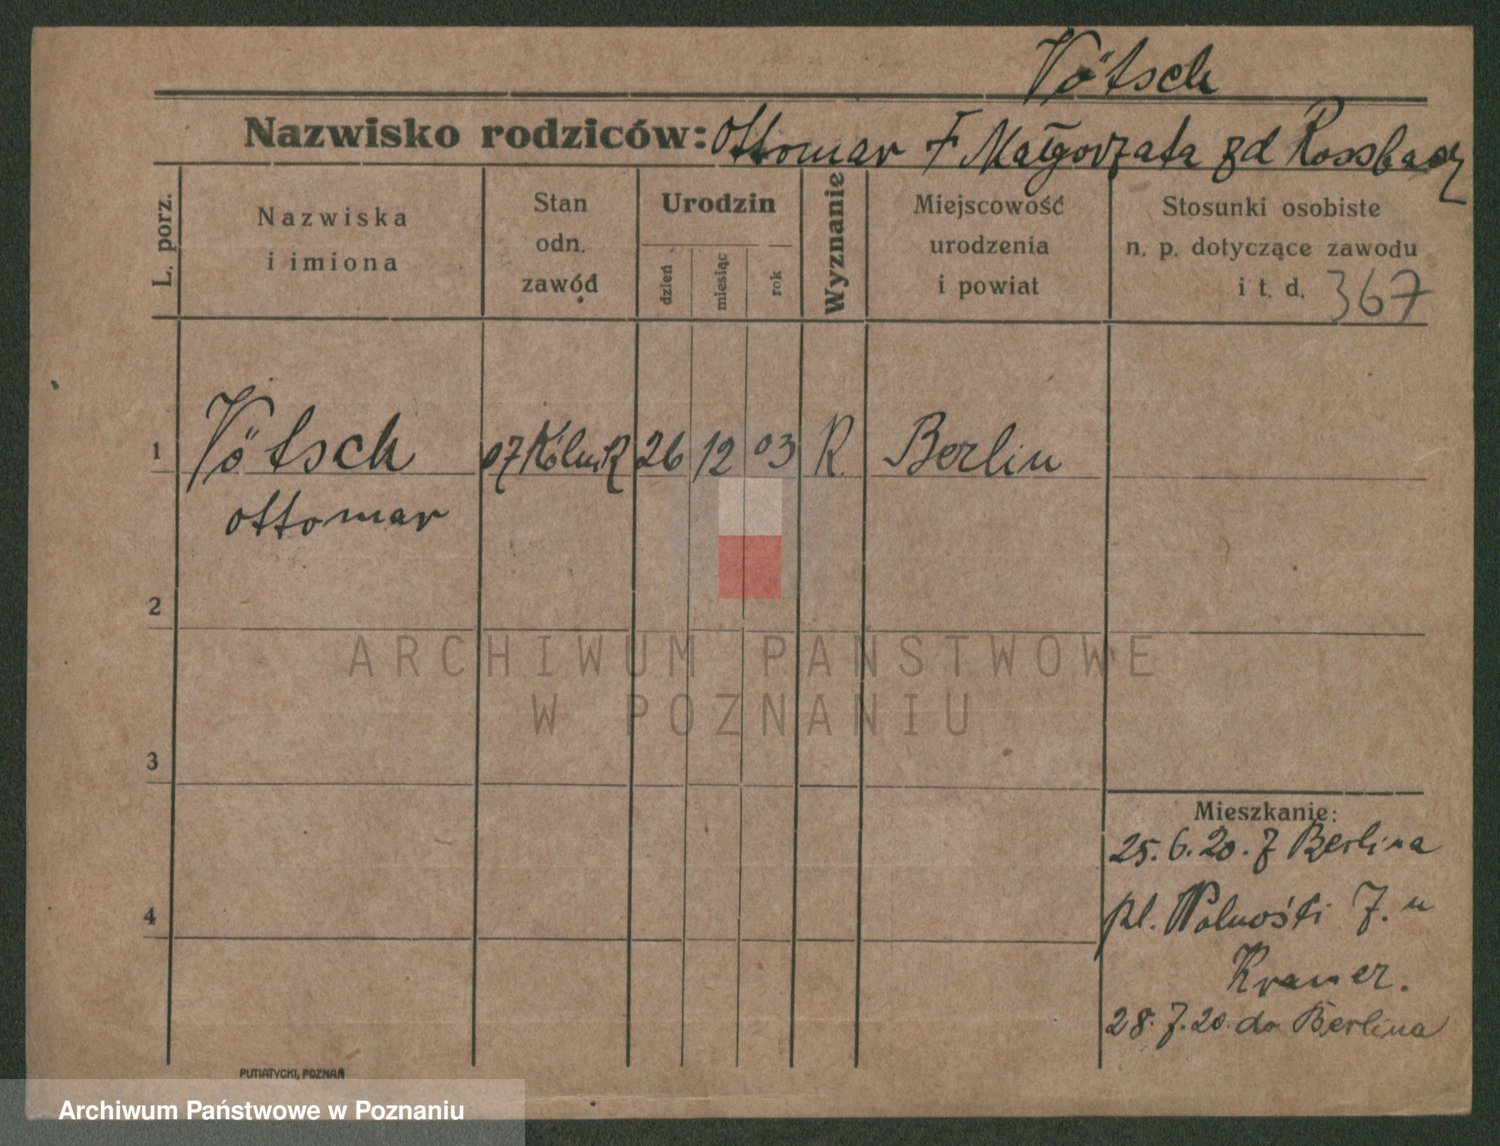 Vötsch
Nazwisko rodziców: Ottomar + Małgorzata zd Rossbach
L. porz.
Nazwiska
i imiona
Stan
odn.
zawód
Urodzin
dzień
miesiąc
rok
Wyznanie
Miejscowość
urodzenia
i powiat
Stosunki osobiste
n. p. dotyczące zawodu
i t. d. 367
1 Vötsch 26 12 03 R. Berlin
Ottomar
2
ARCHIWUM PAŃSTWOWE
W POZNANIU
3
Mieszkanie:
25.6.20. z Berlina
4
pl. Wolności 7. u
Kramer.
28.7.20. do Berlina
PUTIATYCKI, POZNAŃ
Archiwum Państwowe w Poznaniu